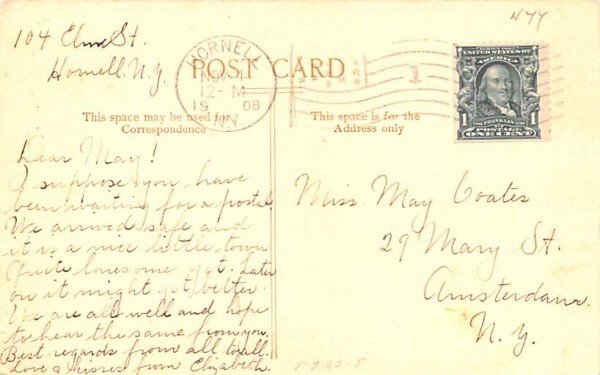 477
104 Elm St.
Hornell. N. Y.
HORNELL
NOV
12-M
19 08
N.Y.
1
POST CARD
SERIES 1902
UNITED STATES OF AMERICA
FRANKLIN
1 POSTAGE 1
ONE CENT
This space may be used for
Correspondence
This space is for the
Address only
Dear May!
I suppose you have
been waiting for a postal.
We arrived safe and
it is a nice little town
Quite lonesome yet. Later
on it might get better.
We are all well and hope
to hear the same from you.
Best regards from all to all.
Love & kisses from Elizabeth.
Miss May Coates
29 Mary St.
Amsterdam.
N. Y.